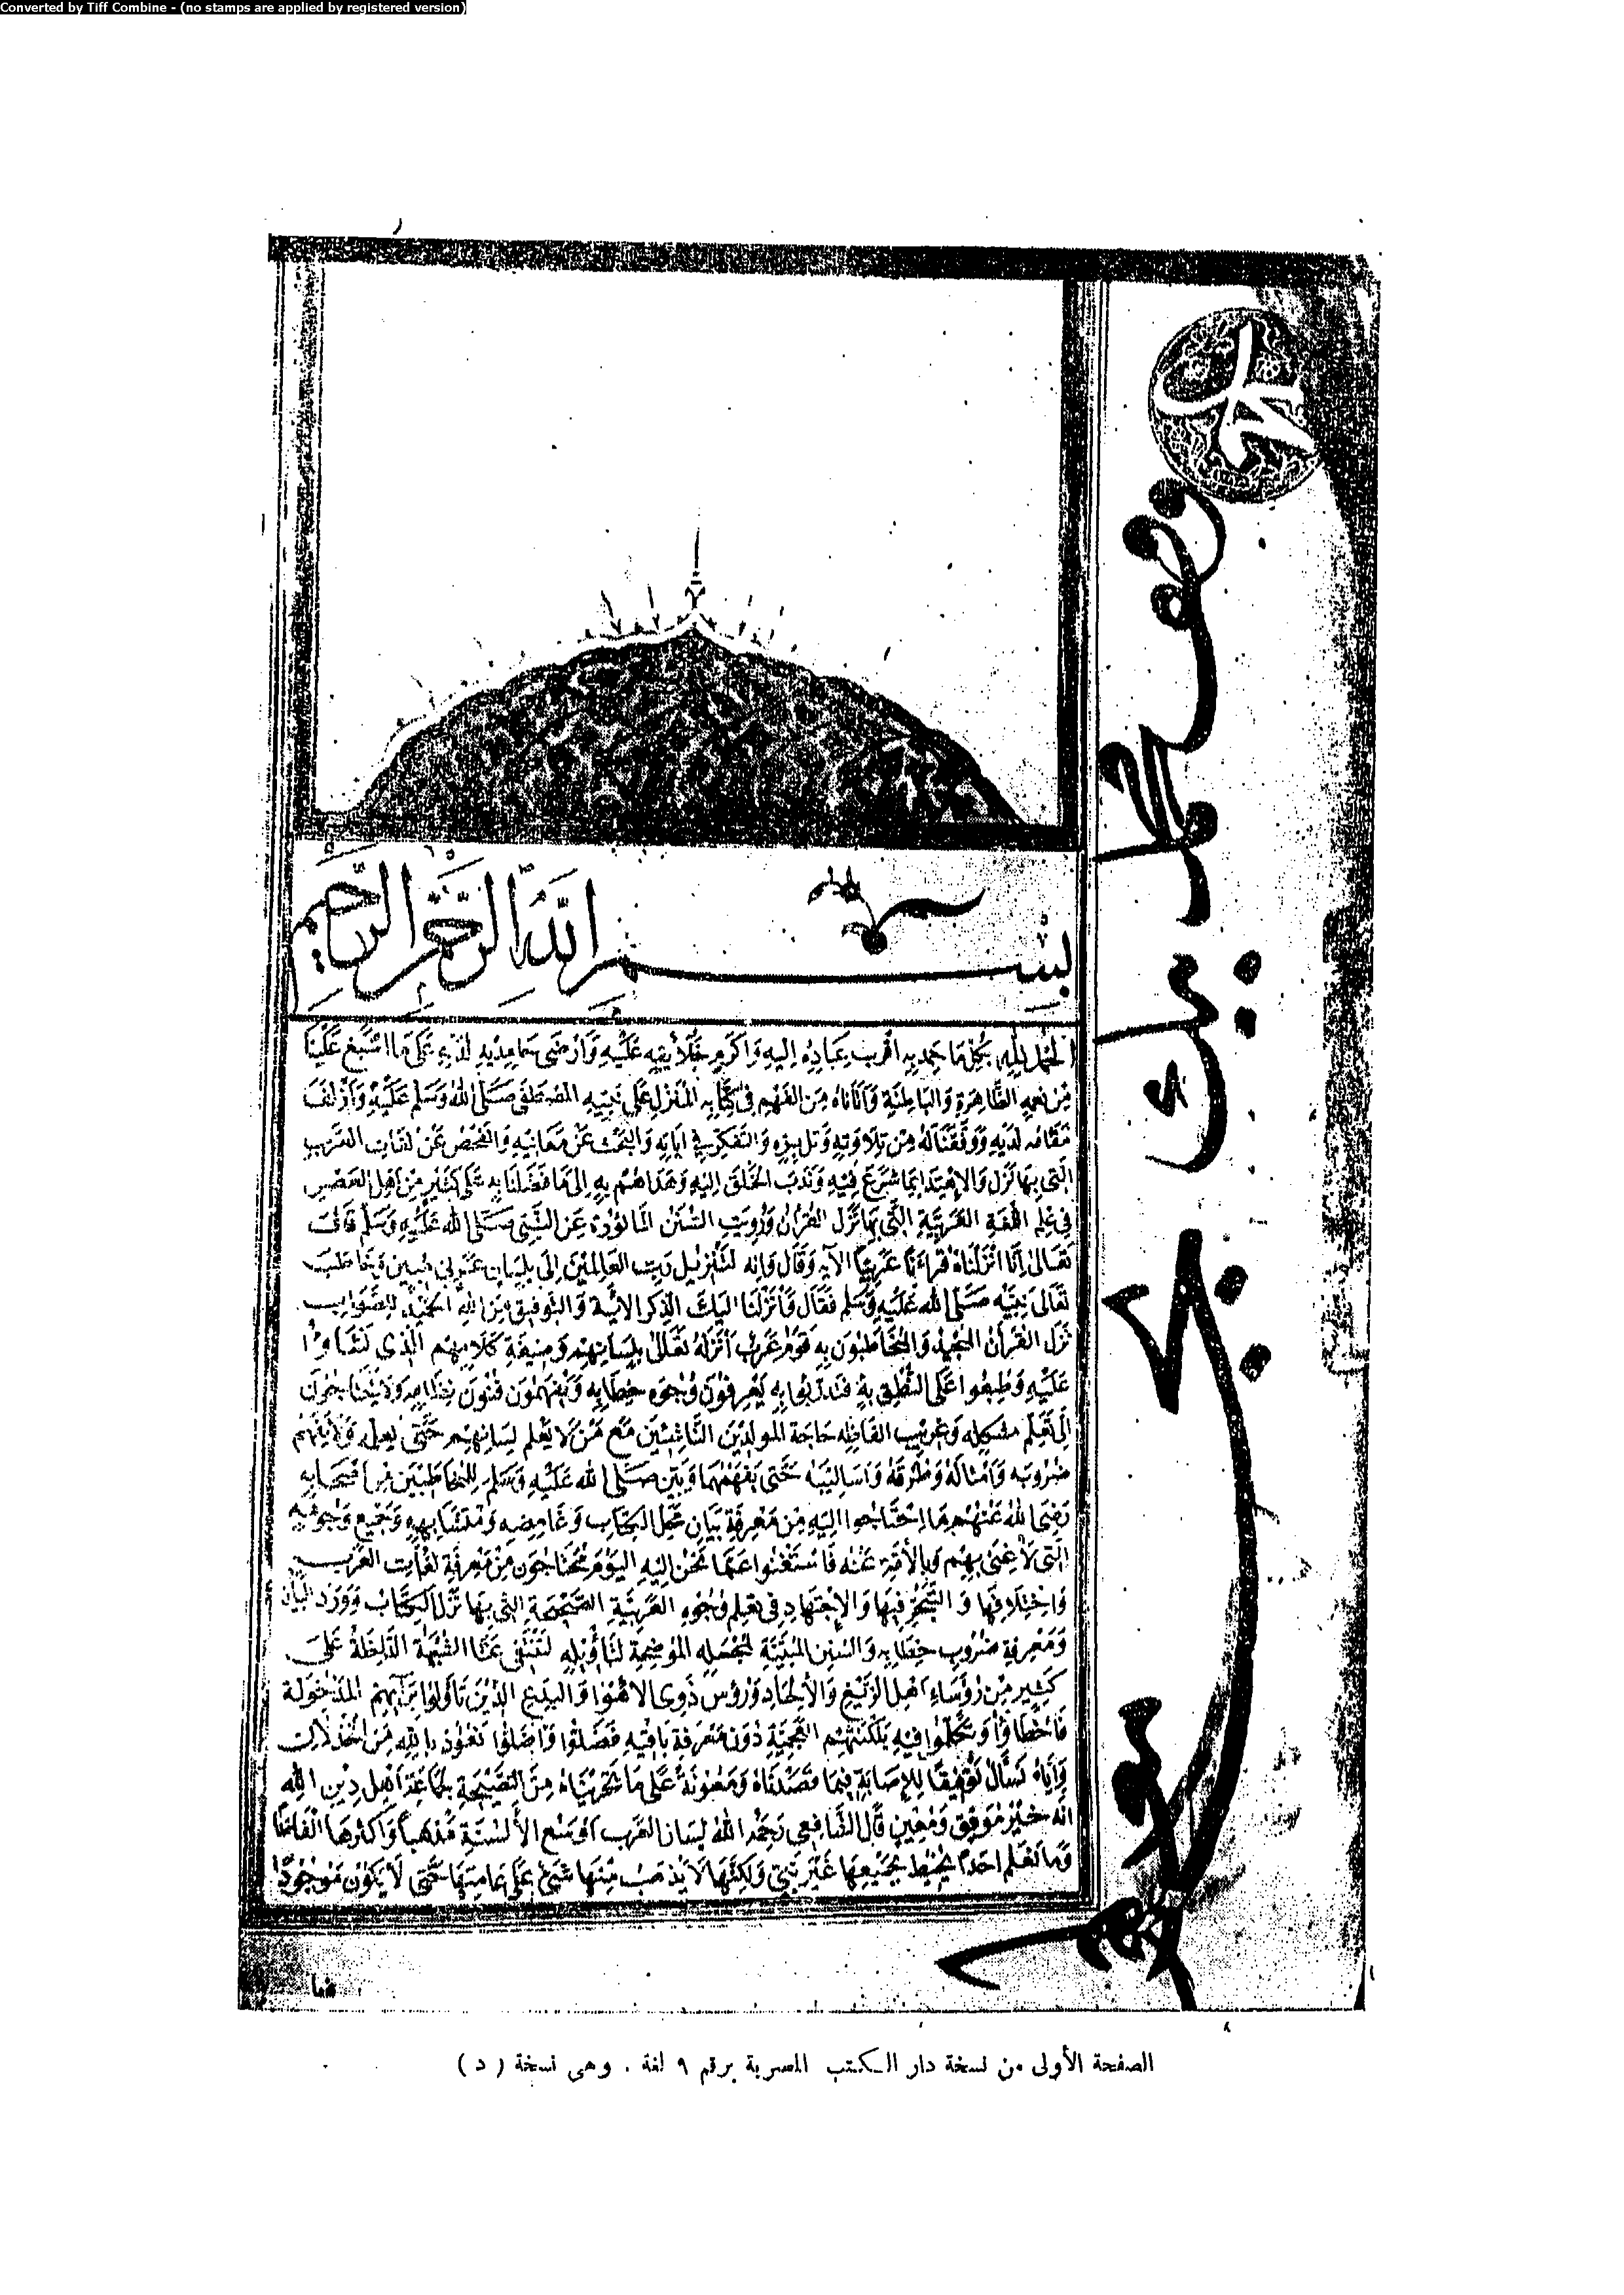 Converted by Tiff Combine - (no stamps are applied by registered version)
بسم الله الرحمن الرحيم
الحمد لله بكل ما حمد به أقرب عباده إليه وأكرم خلائقه عليه وأرضى حامديه لديه على ما اسبغ علينا
من نعمه الظاهرة والباطنة وآتاناه من الفهم في كتابه المنزل على نبيه المصطفى صلى الله وسلم عليه وأزلف
مقامه لديه ووفقنا له من تلاوته وتدبره والتفكر في آياته والبحث عن معانيه والفحص عن لغات العرب
التي بها نزل والاهتداء بما شرع فيه وندب الخلق إليه وهداهم به إلى ما فضلنا به على كثير من أهل العصر
في علم اللغة العربية التي بها نزل القرآن ورويت السنن المأثورة عن النبي صلى الله عليه وسلم قال
تعالى إنا أنزلناه قرآنا عربيا الآية وقال وإنه لتنزيل رب العالمين إلى بلسان عربي مبين وخاطب
تعالى نبيه صلى الله عليه وسلم فقال وأنزلنا إليك الذكر الآية والتوفيق من الله المجيد للصواب
نزل القرآن المجيد والمخاطبون به قوم عرب أنزله تعالى بلسانهم وصيغة كلامهم الذي نشاوا
عليه وطبعوا على النطق به فتدربوا به يعرفون وجوه خطابه ويفهمون فنون نظامه ولا يحتاجون
إلى تعلم مشكله وغريب الفاظه حاجة المولدين الناشئين مع من لا يعلم لسانهم حتى يعلمه ولا يفهم
ضروبه وأمثاله وطرقه وأساليبه حتى يفهمها وبين صلى الله عليه وسلم للمخاطبين من أصحابه
رضى الله عنهم ما احتاجوا إليه من معرفة بيان مجمل الكتاب وغامضه ومتشابهه وجميع وجوهه
التي لا غنى بهم وبالأمة عنه فاستغنوا عما نحن إليه اليوم محتاجون من معرفة لغات العرب
واختلافها والتبحر فيها والاجتهاد في تعلم وجوه العربية الصحيحة التي بها نزل الكتاب وورد البيان
ومعرفة ضروب خطابه والسنن المبينة لمجمله الموضحة لتأويله لتنتفي عنا الشبهة الداخلة على
كثير من رؤساء أهل الزيغ والالحاد ورؤس ذوى الأهواء والبدع الذين تأولوا بآرائهم المدخولة
فأخطأوا وتكلموا فيه بلكنتهم العجمية دون معرفة ثاقبة فضلوا وأضلوا نعوذ بالله من الخذلان
وإياه نسأل توفيقا للإصابة فيما قصدناه ومعونة على ما تحريناه من النصيحة لجماعة أهل دين الله
انه خير موفق ومعين قال الشافعي رحمه الله لسان العرب أوسع الألسنة مذهبا وأكثرها الفاظا
وما نعلم احدا يحيط بجميعها غير نبي ولكنها لا يذهب منها شيء على عامتها حتى لا يكون موجودا
فيها
الصفحة الأولى من نسخة دار الكتب المصرية برقم ٩ لغة . وهى نسخة ( د )